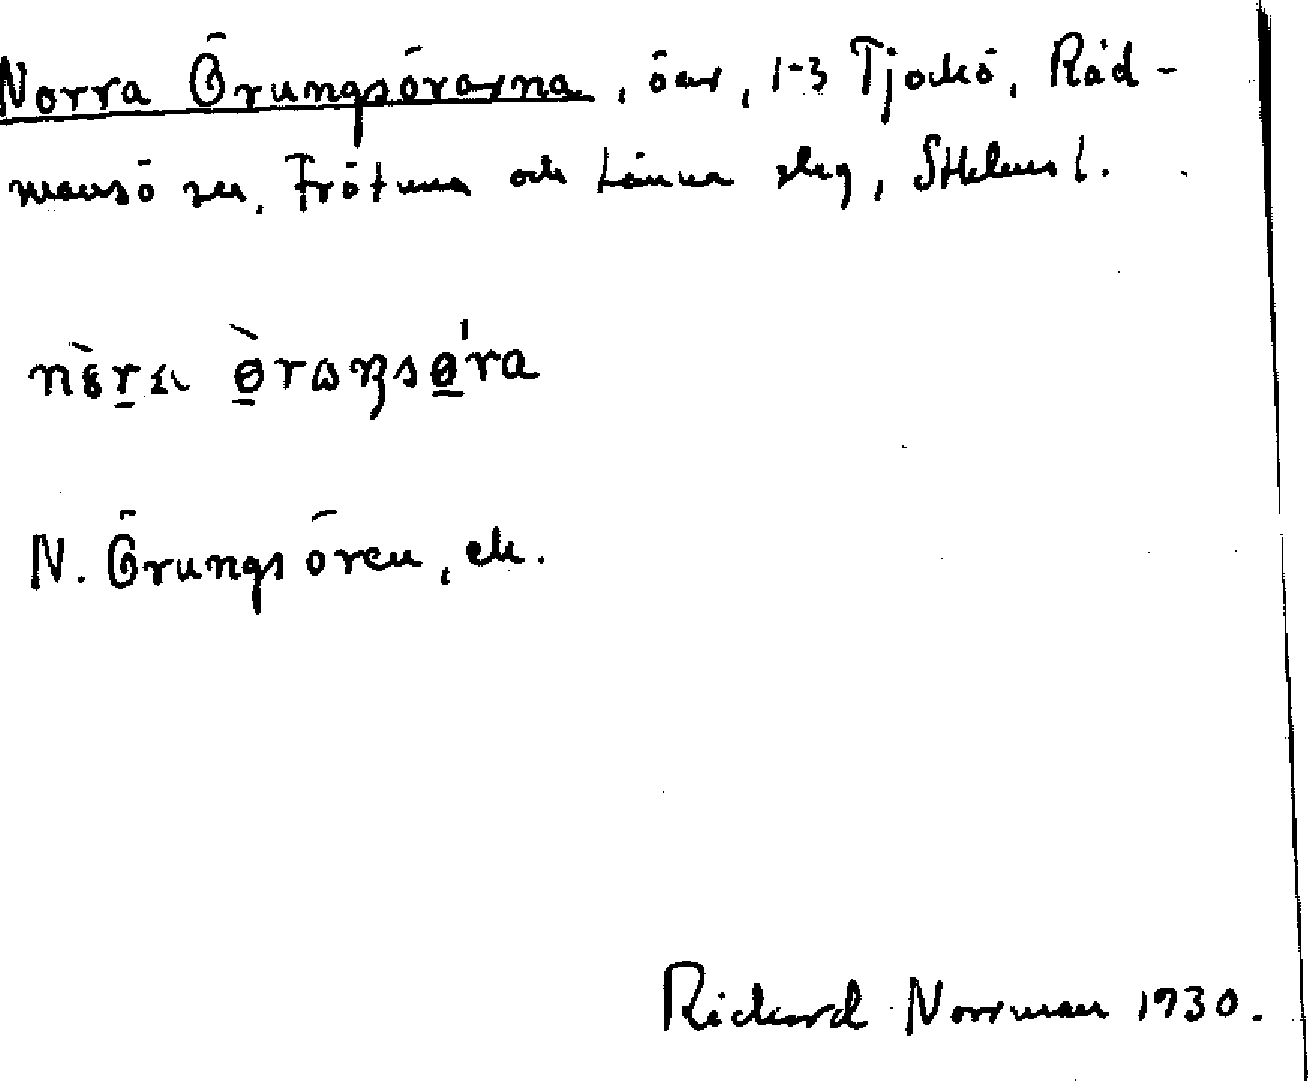 Norra Örungsörarna, öar, 1-3 Tjockö, Råd-
mansö sn, Frötuna och Länna slg, Sthlms l.
N. Örungsören, ek.
Rickard Norrman 1930.